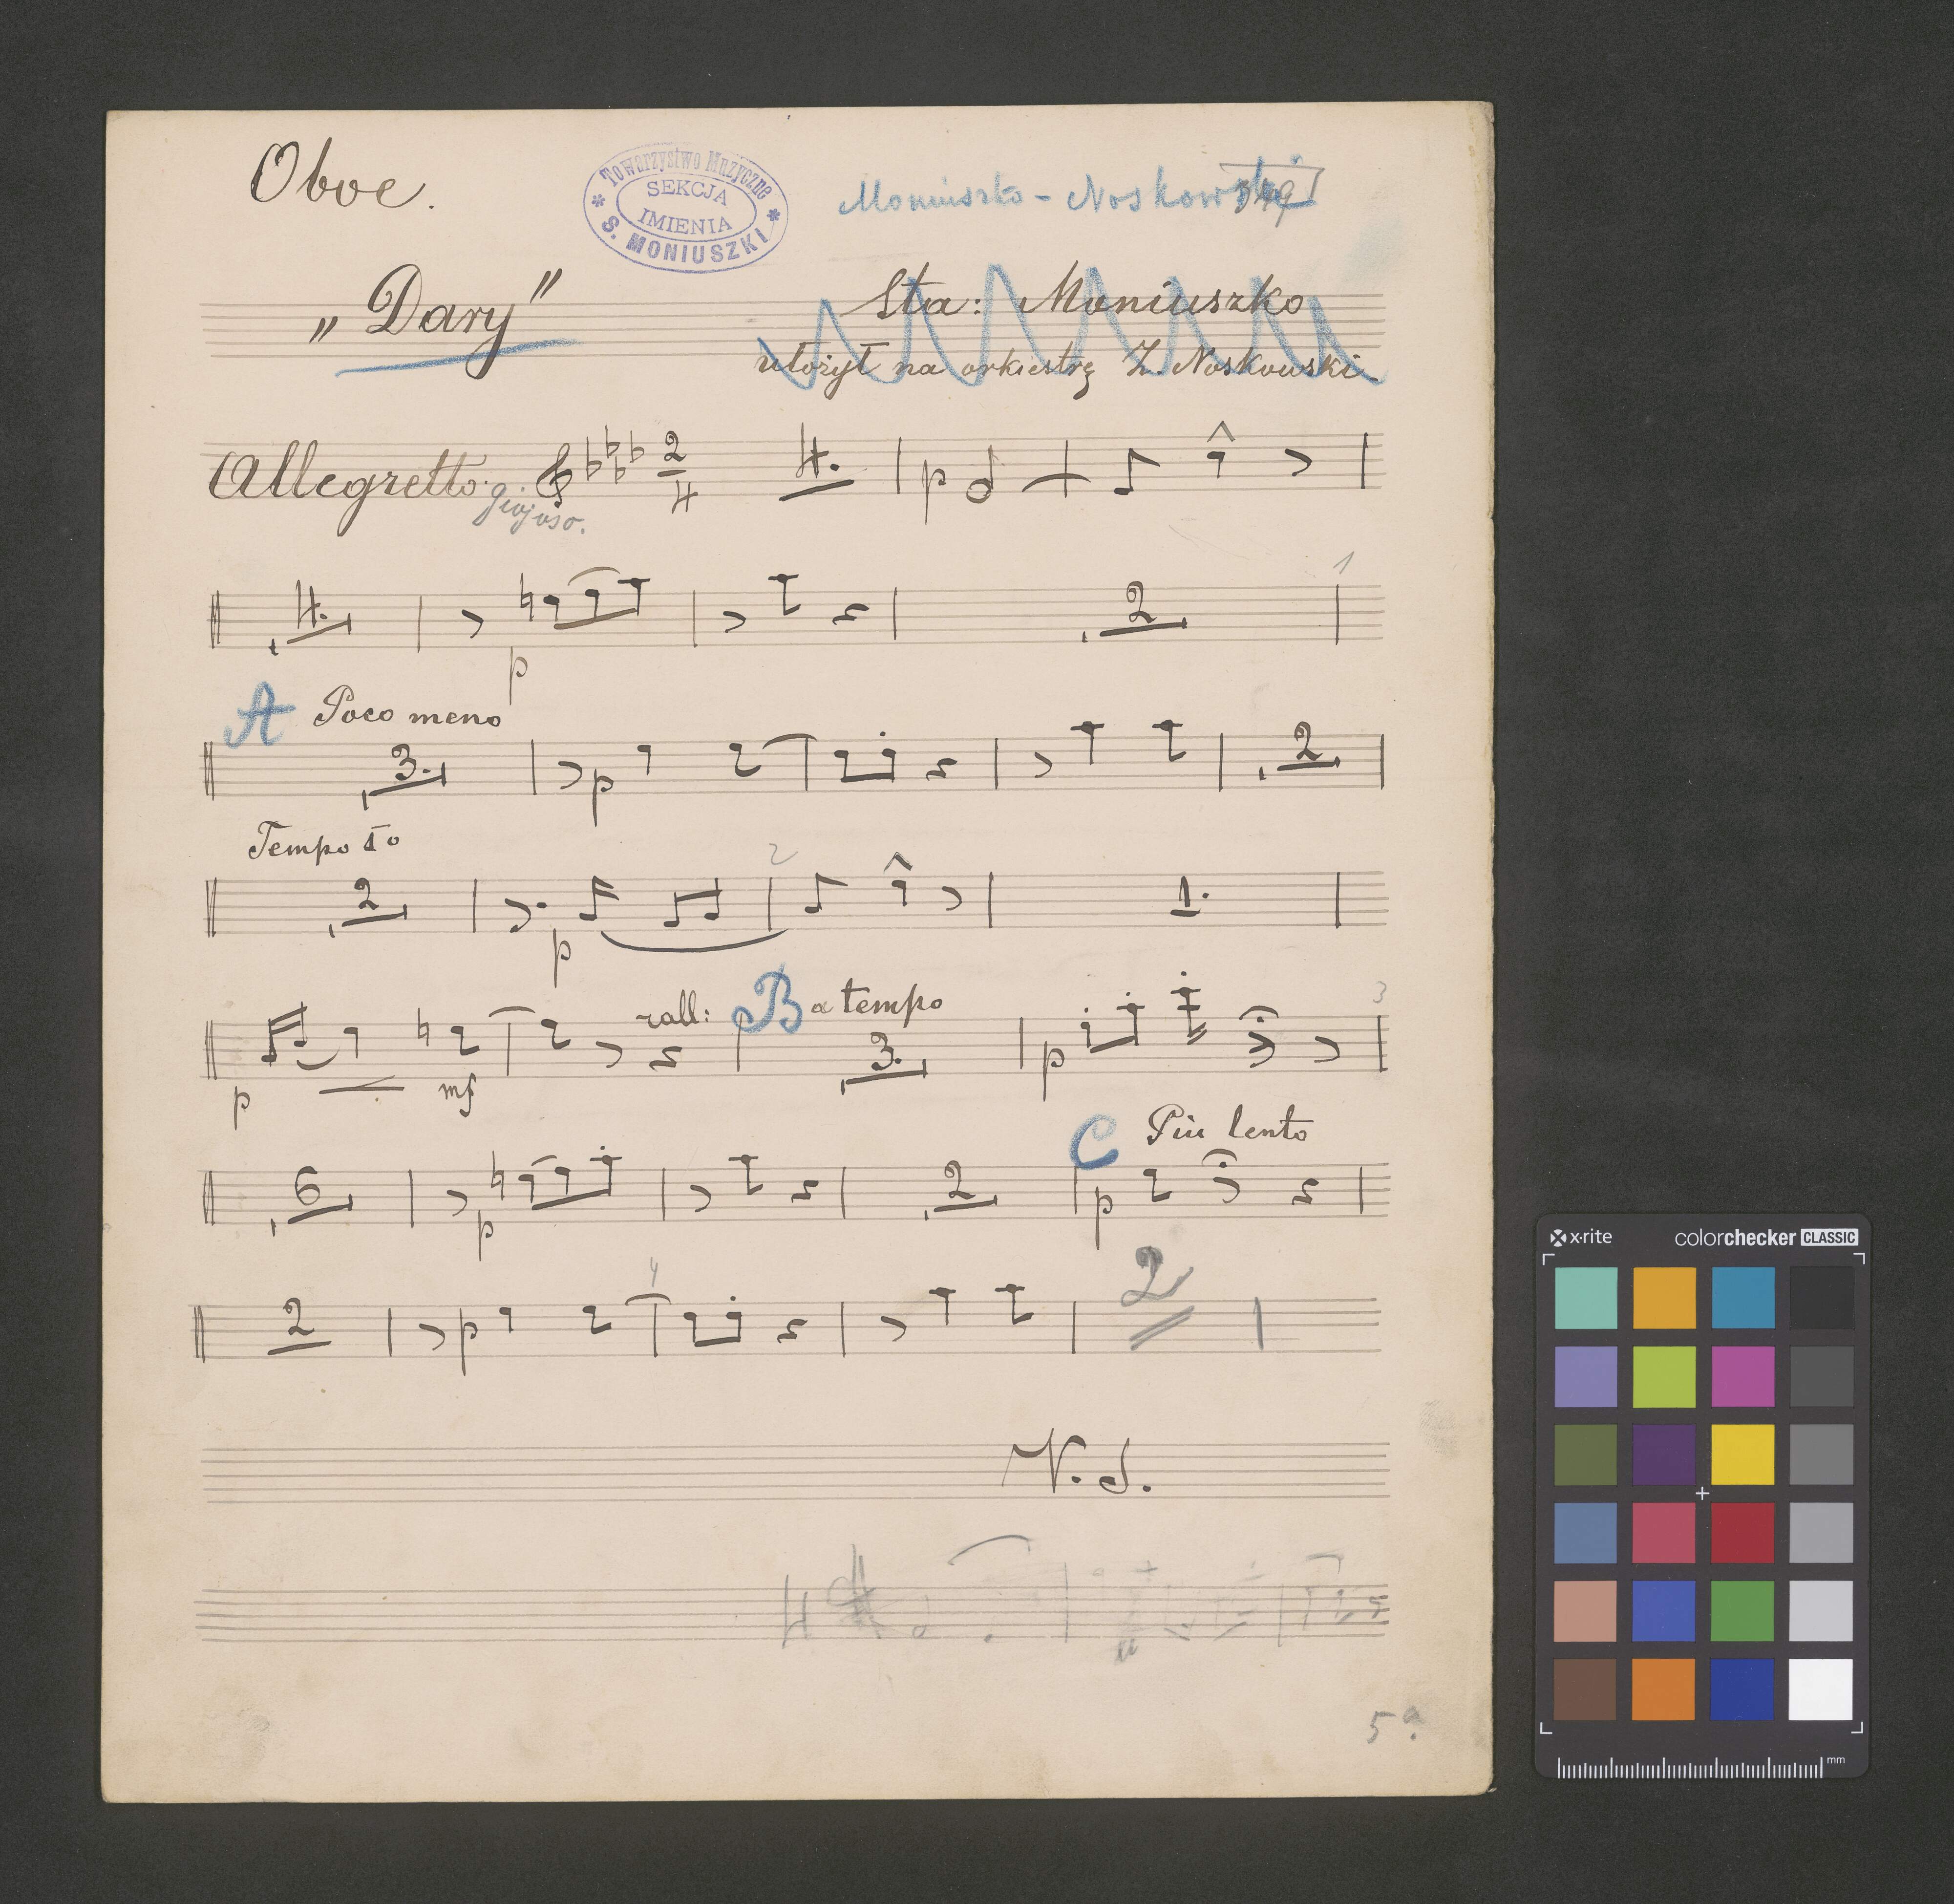 Oboe.
Towarzystwo Muzyczne
SEKCJA
IMIENIA
S. MONIUSZKI
Moniuszko - Noskowski
„Dary”
Sta: Moniuszko
ułożył na orkiestrę Z. Noskowski
Allegretto. giojoso.
2
4
4.
p
4.
p
2
1
A Poco meno
3.
p
2
Tempo Io
2
p
2
1.
p
mf
rall:
B a tempo
3.
p
3
6
p
2
C Piu lento
p
2
p
4
2
V. S.
5a
x-rite
colorchecker CLASSIC
mm